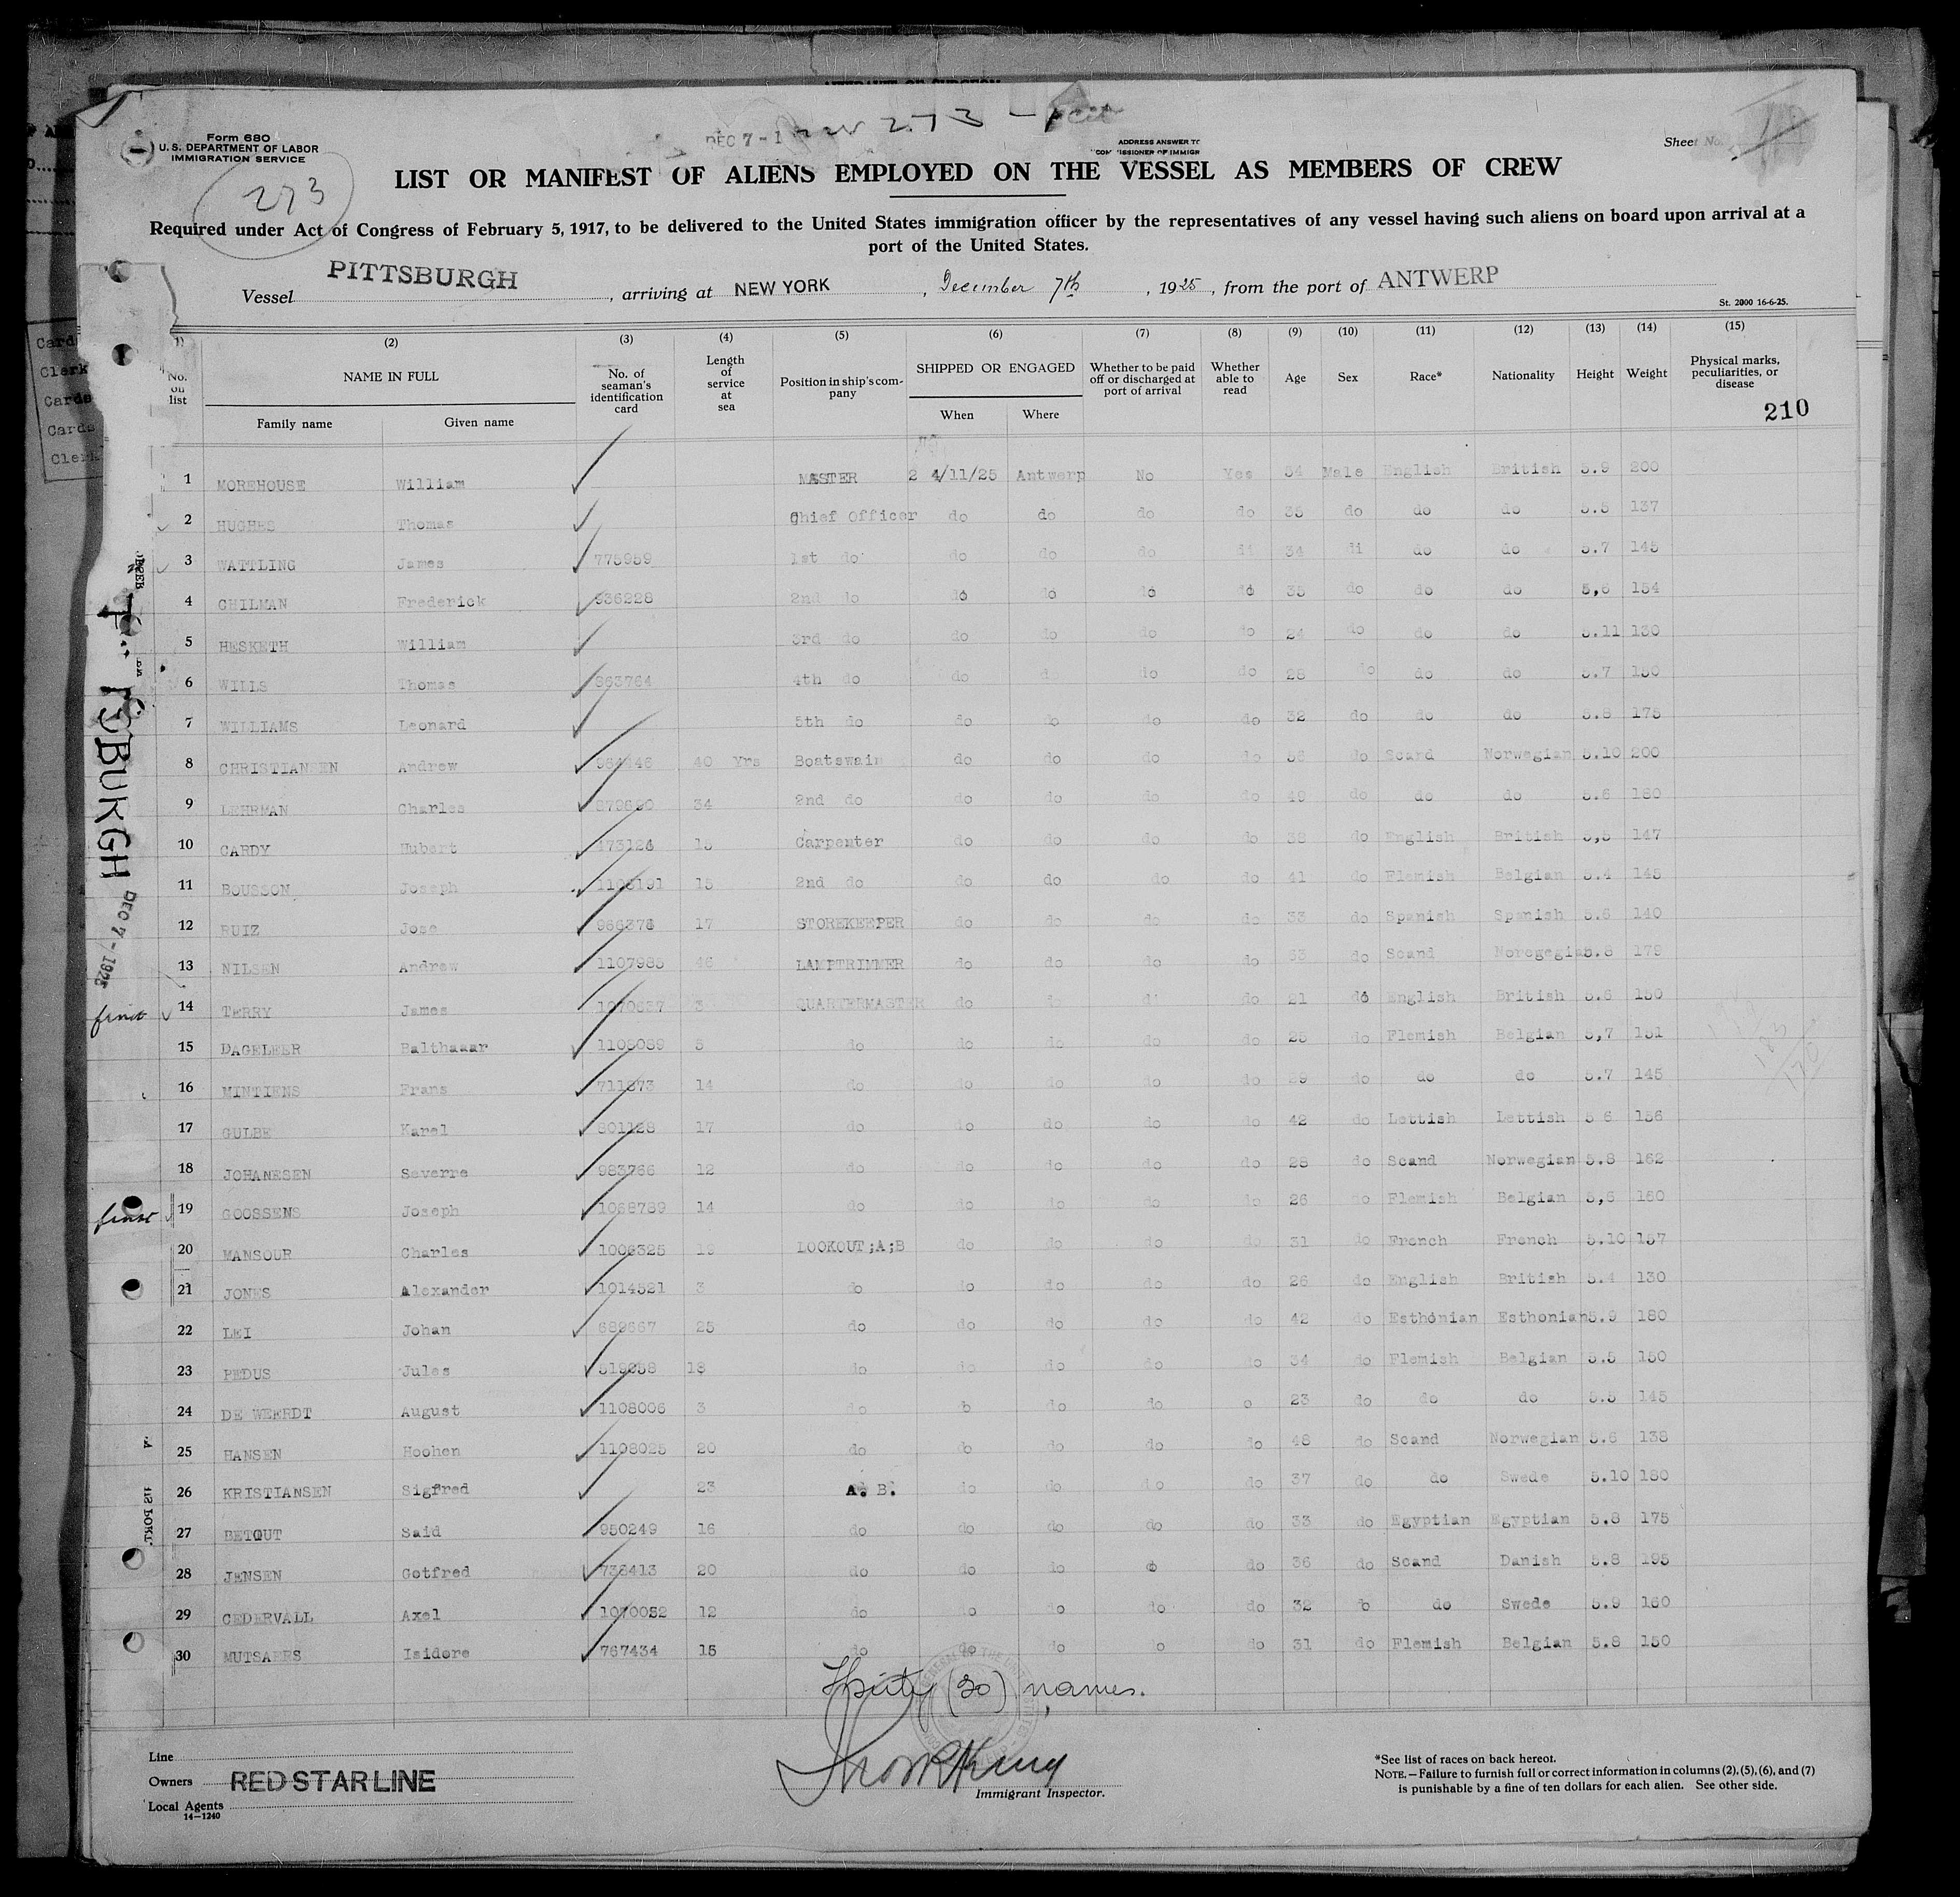 Form 680
U.S. DEPARTMENT OF LABOR
IMMIGRATION SERVICE
273
DEC 7 - 1
273 -
ADDRESS ANSWER TO
COMMISSIONER OF IMMIGR
Sheet No.
LIST OR MANIFEST OF ALIENS EMPLOYED ON THE VESSEL AS MEMBERS OF CREW
Required under Act of Congress of February 5, 1917, to be delivered to the United States immigration officer by the representatives of any vessel having such aliens on board upon arrival at a
port of the United States.
Vessel PITTSBURGH, arriving at NEW YORK, December 7th, 1925, from the port of ANTWERP
St. 2000 16-6-25.
(1) (2) (3) (4) (5) (6) (7) (8) (9) (10) (11) (12) (13) (14) (15)
No. on list NAME IN FULL No. of seaman's identification card Length of service at sea Position in ship's company SHIPPED OR ENGAGED Whether to be paid off or discharged at port of arrival Whether able to read Age Sex Race* Nationality Height Weight Physical marks, peculiarities, or disease
Family name Given name When Where
210
1 MOREHOUSE William MASTER 2 4/11/25 Antwerp No Yes 34 Male English British 5.9 200
2 HUGHES Thomas Chief Officer do do do do 35 do do do 5.5 137
3 WATTLING James 775959 1st do do do do di 34 di do do 5.7 145
4 CHILMAN Frederick 936228 2nd do do do do do 35 do do do 5,6 154
5 HESKETH William 3rd do do do do do 24 do do do 5.11 130
6 WILLS Thomas 863764 4th do do d do do 28 do do do 5.7 150
7 WILLIAMS Leonard 5th do do do do do 32 do do do 5.8 175
8 CHRISTIANSEN Andrew 40 Yrs Boatswain do do do do 56 do Scard Norwegian 5.10 200
9 LEHRMAN Charles 34 2nd do do do do do 49 do do do 5.6 160
10 CARDY Hubert 15 Carpenter do do do do 38 do English British 5,8 147
11 BOUSSON Joseph 1103191 15 2nd do do do do do 41 do Flemish Belgian 5.4 145
12 RUIZ Jose 17 STOREKEEPER do do do do 33 do Spanish Spanish 5.6 140
13 NILSEN Andrew 1107985 46 LAMPTRIMMER do do do do 53 do Scand Noregegian 5.8 179
14 TERRY James 1070637 3 QUARTERMASTER do do di do 21 do English British 5.6 150
15 DAGELEER Balthaaar 5 do do do do do 25 do Flemish Belgian 5,7 151
16 MINTIENS Frans 711873 14 do do do do do 29 do do do 5.7 145
17 GULBE Karel 801128 17 do do do do do 42 do Lettish Lettish 5 6 156
18 JOHANESEN Saverre 983766 12 do do do do do 28 do Scand Norwegian 5.8 162
19 GOOSSENS Joseph 1068789 14 do do do do do 26 do Flemish Belgian 5,6 160
20 MANSOUR Charles 1006325 19 LOOKOUT;A;B do do do do 31 do French French 5.10 157
21 JONES Alexander 1014521 3 do do do do do 26 do English British 5.4 130
22 LEI Johan 689667 25 do do do do do 42 do Esthonian Esthonian 5.9 180
23 PEDUS Jules 18 do do do do do 34 do Flemish Belgian 5.5 150
24 DE WEERDT August 1108006 3 do do do do 23 do do do 5.5 145
25 HANSEN Hoohen 1108025 20 do do do do do 48 do Scand Norwegian 5.6 138
26 KRISTIANSEN Sigfred 23 A. B. do do do do 37 do do Swede 5.10 180
27 BETOUT Said 950249 16 do do do do do 33 do Egyptian Egyptian 5.8 175
28 JENSEN Gotfred 738413 20 do do do do do 36 do Scand Danish 5.8 195
29 CEDERVALL Axel 1070052 12 do do do do do 32 do do Swede 5.9 160
30 MUTSAERS Isidore 767434 15 do do do do do 31 do Flemish Belgian 5.8 150
Thirty (30) names.
Line
Owners RED STAR LINE
Local Agents
14-1240
Immigrant Inspector.
*See list of races on back hereof.
NOTE.—Failure to furnish full or correct information in columns (2), (5), (6), and (7)
is punishable by a fine of ten dollars for each alien. See other side.
DEC 7 - 1925